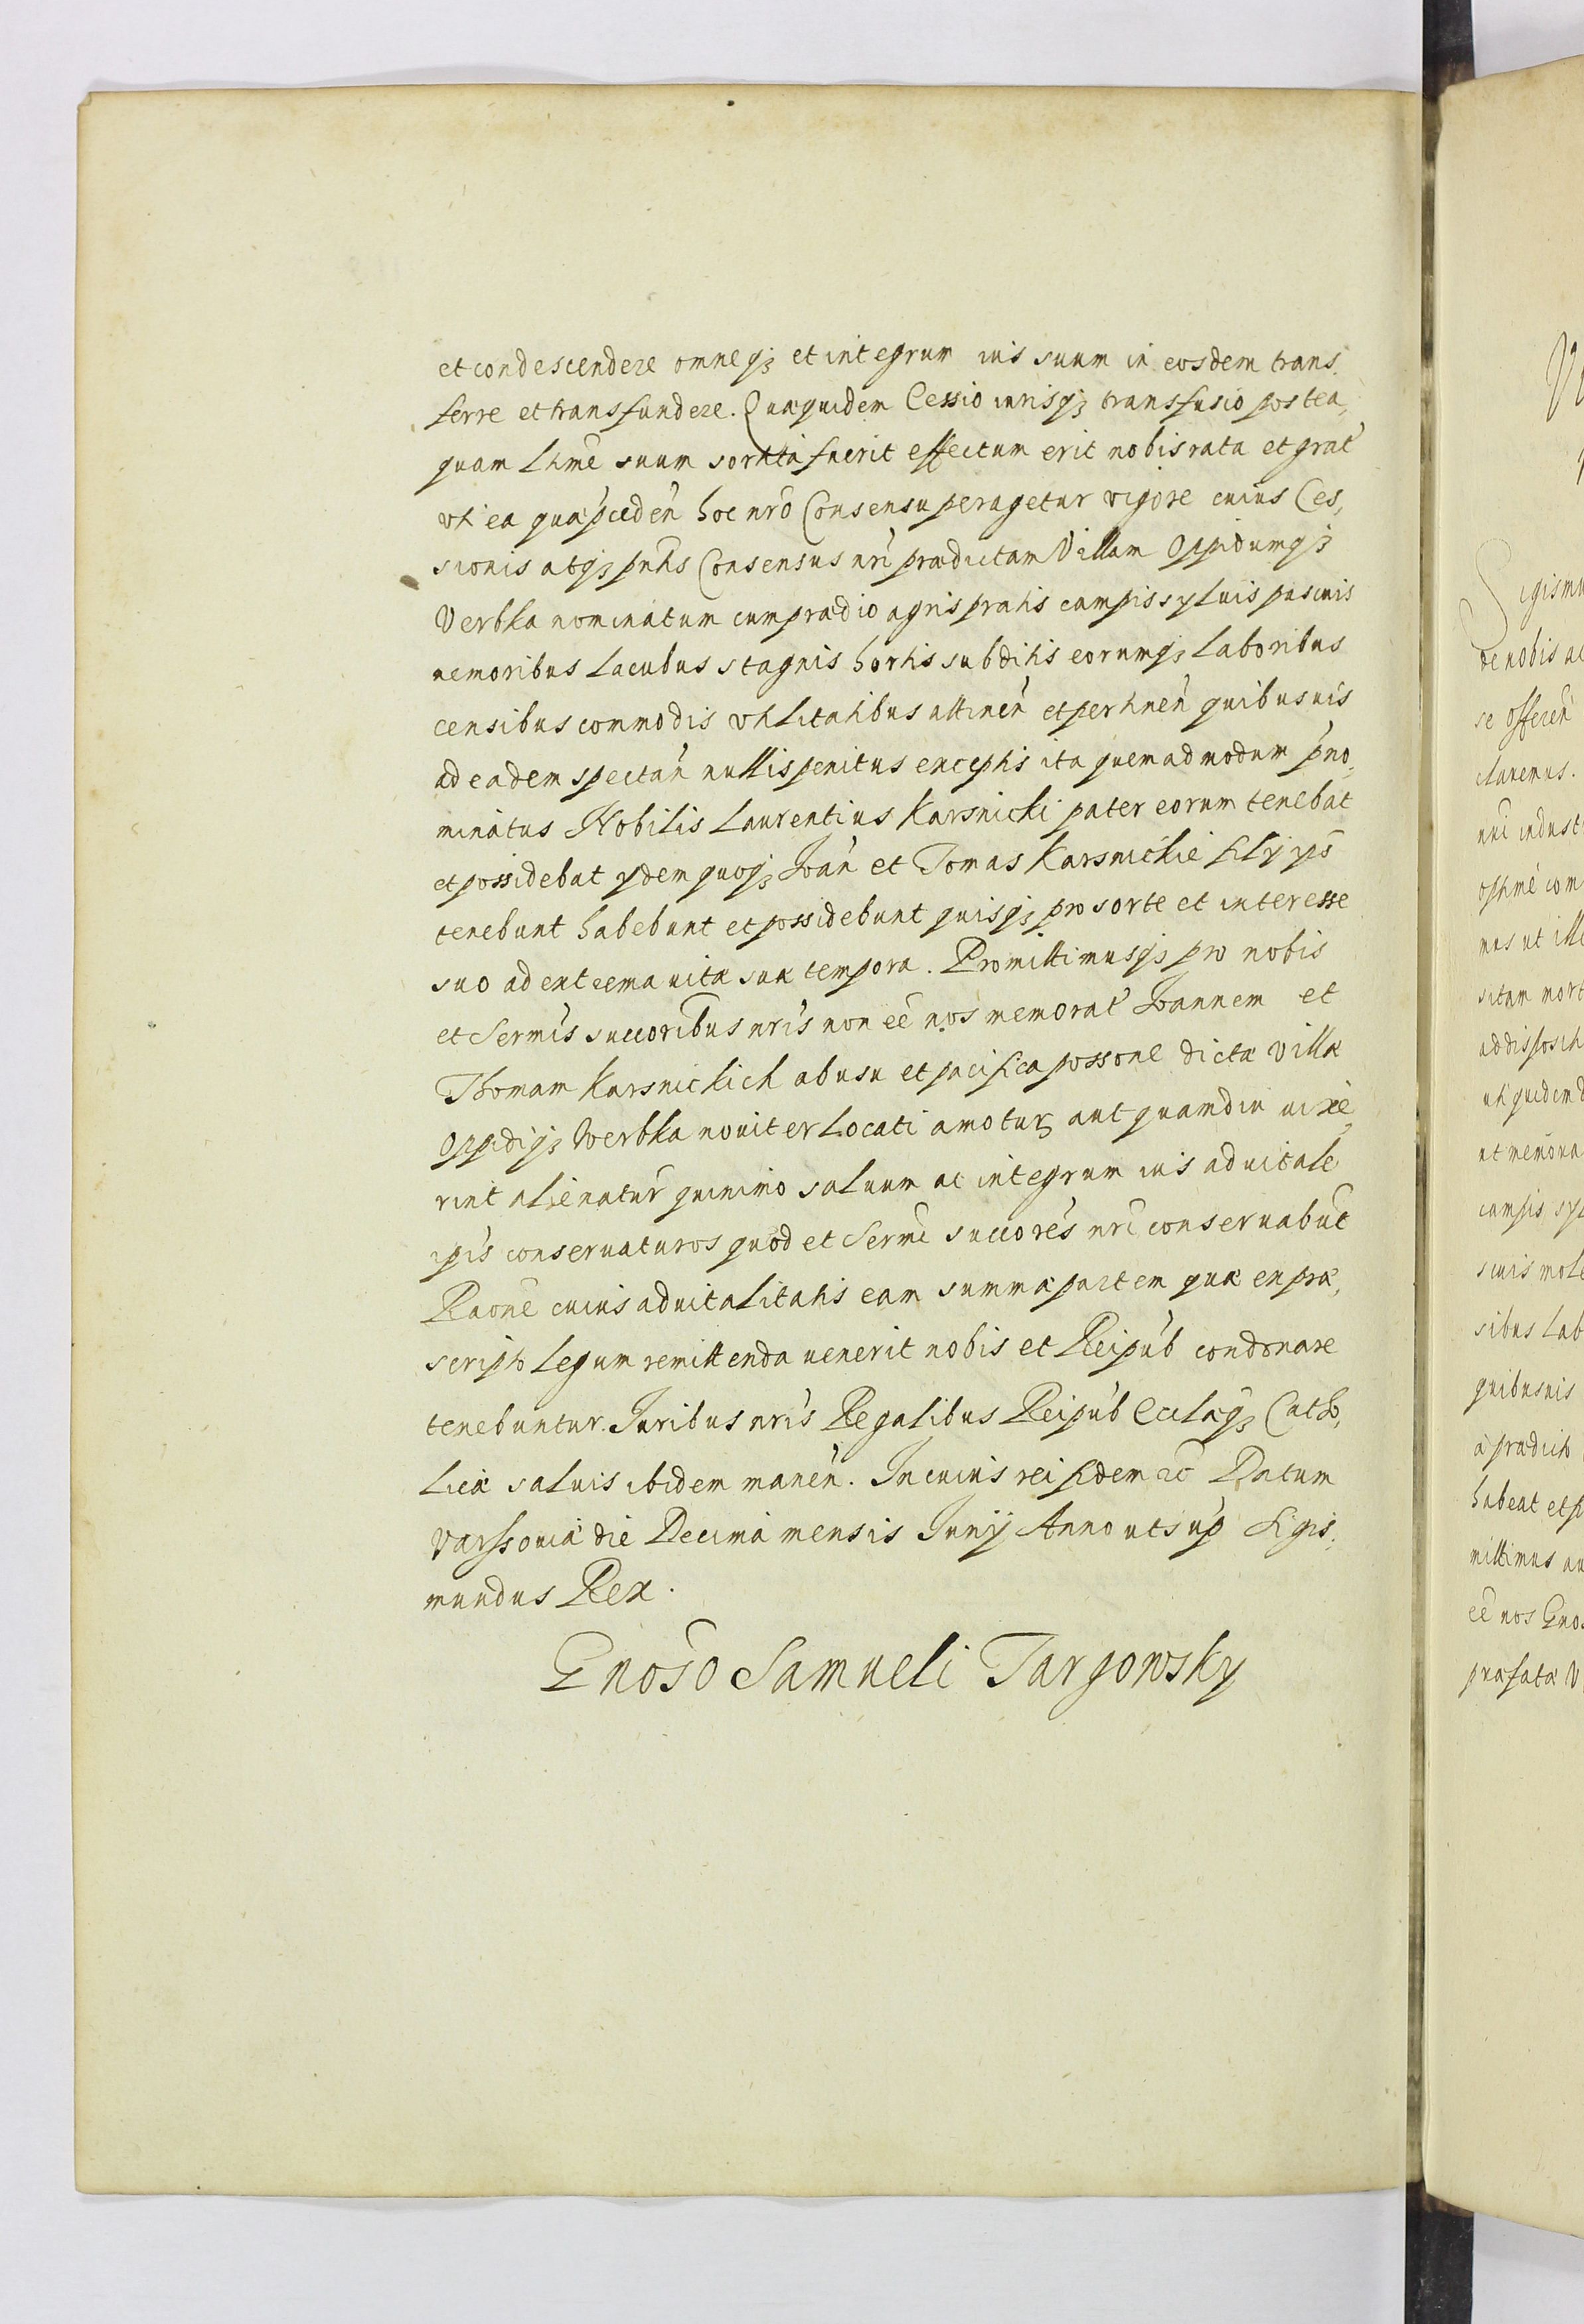 et condescendere omneqꝫ et integrum ius suum in eosdem trans,
ferre et transfundere. Quæquidem Cessio iurisqꝫ transfusio postea,
quam Ltime suum sortita fuerit effectum erit nobis rata et grat
uti ea quæ præceden hoc nro Consensu peragetur vigore cuius Ces,
sionis atqꝫ pntis Consensus nri prædictam Villam Oppidumqꝫ
Verbka nominatum cum prædio agris pratis campis syluis pascuis
nemoribus Lacubus stagnis hortis subditis eorumqꝫ Laboribus
censibus commodis vtilitatibus attinen et pertinen quibusuis
ad eadem spectan nullis penitus exceptis ita quemadmodum pno,
minatus Nobilis Laurentius Karsnicki pater eorum tenebat
et possidebat ydem quoqꝫ Ioan et Tomas Karsnickie filij yps
tenebunt habebunt et possidebunt quisqꝫ pro sorte et interesse
suo ad extrema uitæ suæ tempora. Promittimusqꝫ pro nobis
et Sermis succoribus nris non ee nos memorat Ioannem et
Thomam Karsnickich ab usu et pacifica possone dictæ villæ
Oppidiqꝫ Werbka nouiter Locati amotur aut quamdiu uixe,
rint alienatur quinimo saluum ac integrum ius aduitale
ipis conseruaturos quod et Sermi succores nri conseruabut
Raone cuius aduitalitatis eam summæ partem quæ ex præ,
scripto Legum remittenda uenerit nobis et Reipub condonare
tenebuntur. Iuribus nris Regalibus Reipub Ecclæqꝫ Catho,
licæ saluis ibidem manen. In cuius rei fidem ꝛc Datum
Varssouiæ die Decima mensis Iunij Anno ut sup Sigis,
mundus Rex.
Gnoso Samueli Targowsky
Sigismu
de nobis ac
se offeren
claremus.
nri indust
optime com
mus ut ill
sitam mort
ad disposit
uti quidem d
ut memora
campis syl
scuis mole
sibus Lab
quibusuis
a prædicto
habeat et p
mittimus au
ee nos Gnos
præfatæ V